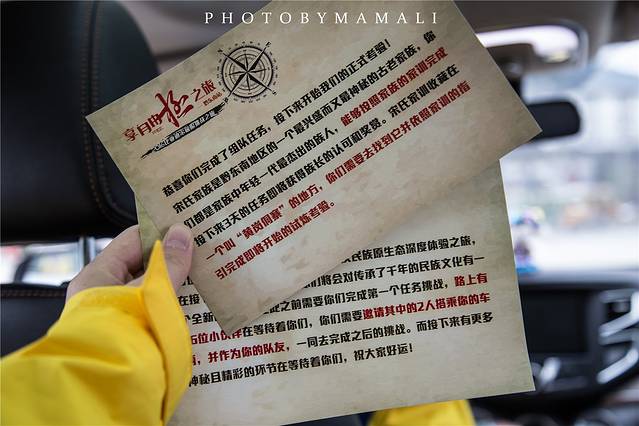 PHOTOBYMAMALI
享自由
极
之旅
恭喜你们完成了组队任务，接下来开始我们的正式考验！
宋氏家族是黔东南地区的一个最兴盛而又最神秘的古老家族，你
们都是家族中年轻一代最杰出的族人，能够按照家族的家训完成
接下来3天的任务即将获得族长的认可和奖赏。宋氏家训收藏在
一个叫“黄岗侗寨”的地方，你们需要去找到它并依照家训的指
引完成即将开始的试炼考验。
民族原生态深度体验之旅，
们将会对传承了千年的民族文化有一
在接
此之前需要你们完成第一个任务挑战，路上有
个全新
位小伙伴在等待着你们，你们需要邀请其中的2人搭乘你的车
，并作为你的队友，一同去完成之后的挑战。而接下来有更多
神秘且精彩的环节在等待着你们，祝大家好运！